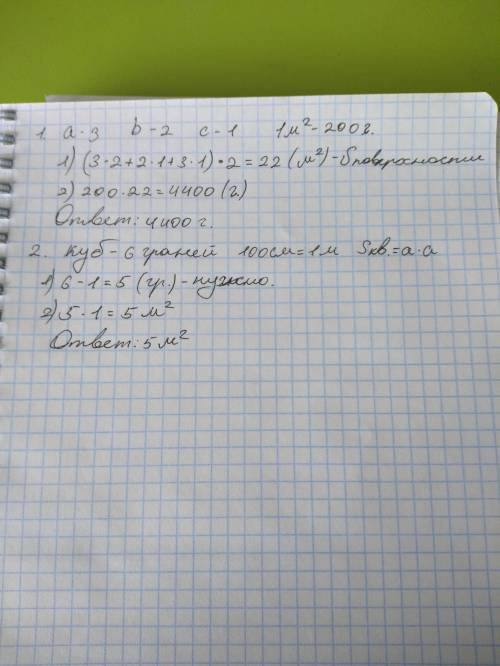 1. a-3 b-2 c-1 1м²-200г.
1) (3·2+2·1+3·1)·2=22(м²)-Sповерхности
2) 200·22=4400(г.)
Ответ: 4400г.
2. Куб-6 граней 100см=1м Sкв.=a·a
1) 6-1=5 (гр.)-нужно.
2) 5·1=5м²
Ответ: 5м²